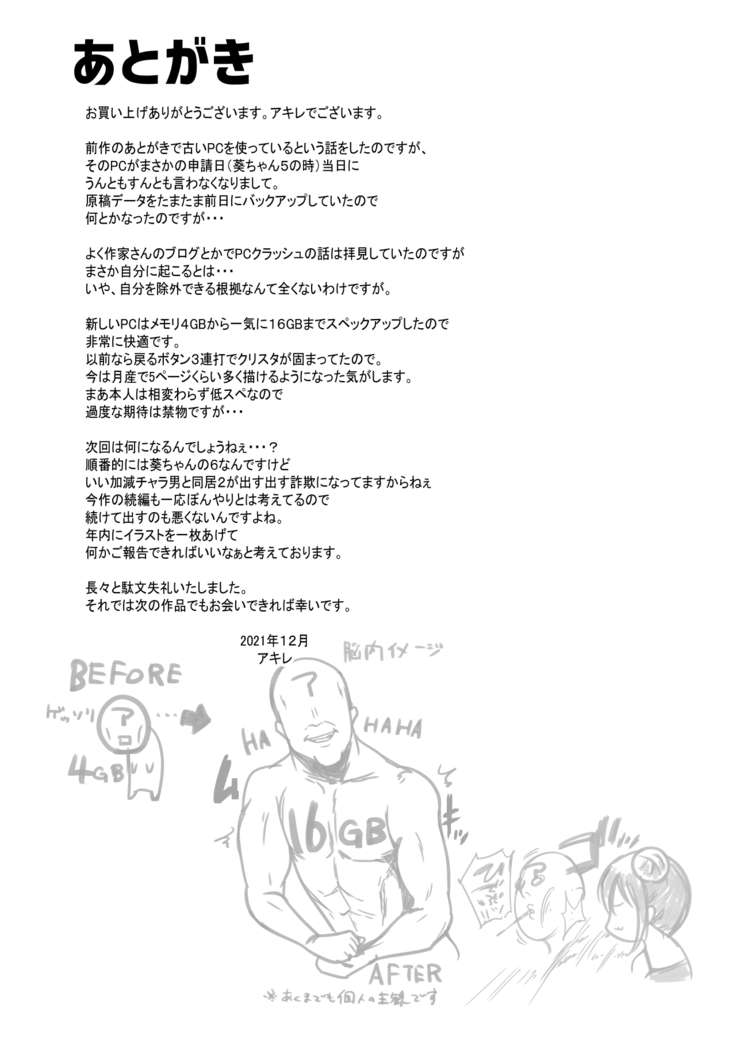 あとがき
お買い上げありがとうございます。アキレでございます。
前作のあとがきで古いPCを使っているという話をしたのですが、
そのPCがまさかの申請日（葵ちゃん５の時）当日に
うんともすんとも言わなくなりまして。
原稿データをたまたま前日にバックアップしていたので
何とかなったのですが・・・
よく作家さんのブログとかでPCクラッシュの話は拝見していたのですが
まさか自分に起こるとは・・・
いや、自分を除外できる根拠なんて全くないわけですが。
新しいPCはメモリ４GBから一気に１６GBまでスペックアップしたので
非常に快適です。
以前なら戻るボタン３連打でクリスタが固まってたので。
今は月産で5ページくらい多く描けるようになった気がします。
まあ本人は相変わらず低スペなので
過度な期待は禁物ですが・・・
次回は何になるんでしょうねぇ・・・？
順番的には葵ちゃんの６なんですけど
いい加減チャラ男と同居２が出す出す詐欺になってますからねぇ
今作の続編も一応ぼんやりとは考えてるので
続けて出すのも悪くないんですよね。
年内にイラストを一枚あげて
何かご報告できればいいなぁと考えております。
長々と駄文失礼いたしました。
それでは次の作品でもお会いできれば幸いです。
2021年１２月
アキレ
脳内イメージ
BEFORE
ゲッソリ
ア
・・・
4GB
ア
HA
HAHA
ムキッ
16GB
AFTER
※あくまでも個人の主観です